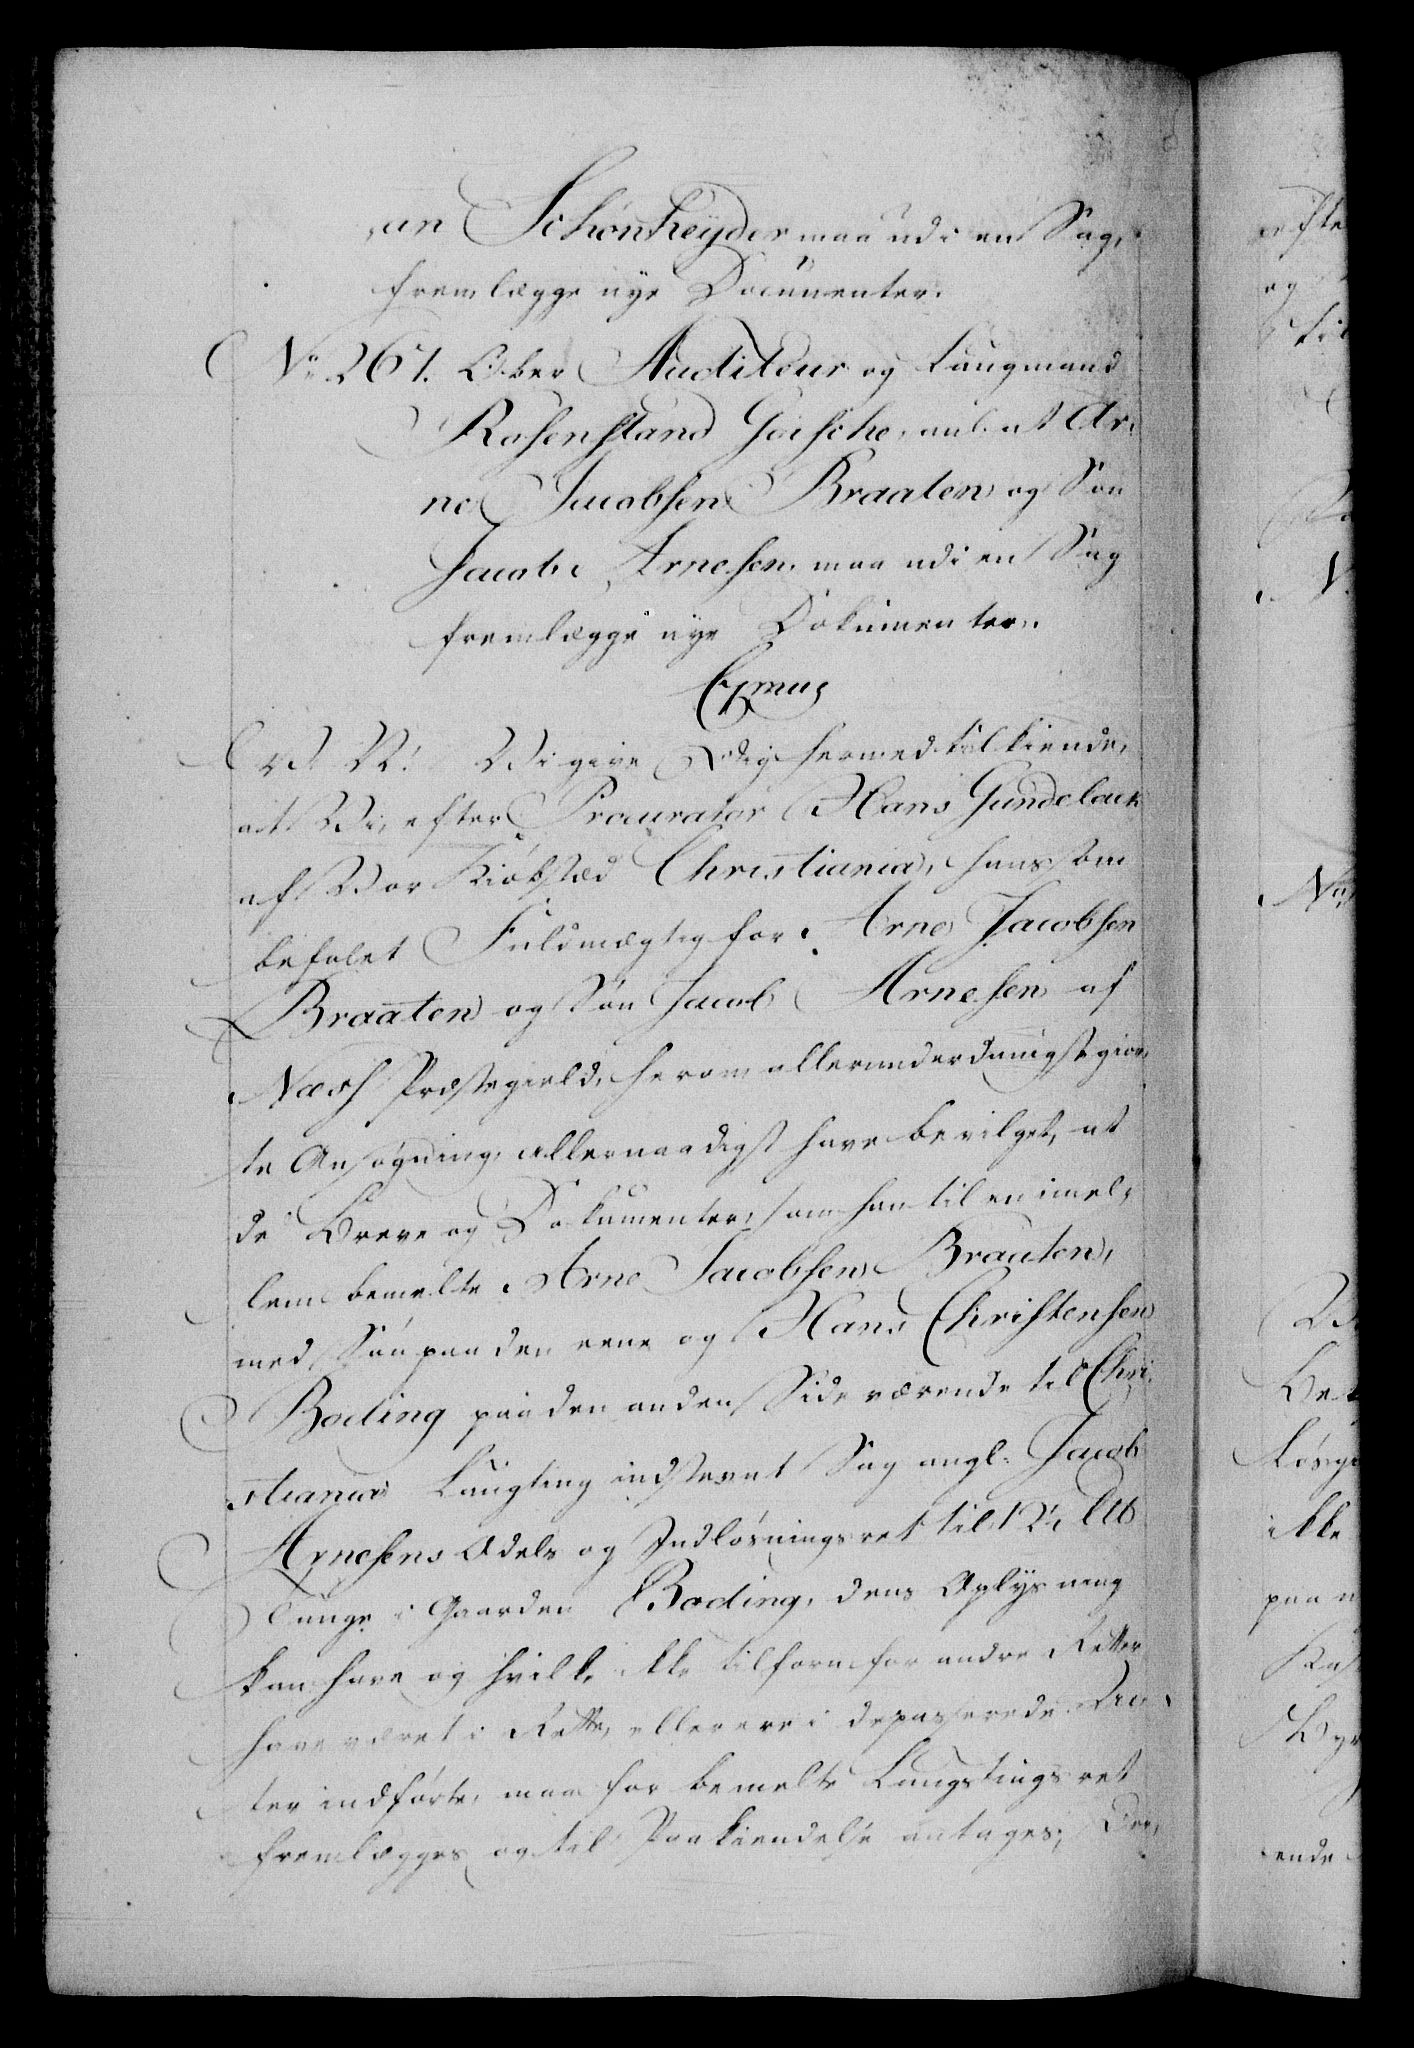 an Schønheyder maa udi en Sag,
fremlægge nye Documenter.
No 267. Ober Auditeur og Laugmand
Rosenstand Goische, anl. at Ar-
ne Jacobsen Braaten og Søn
Jacob Arnesen maa udi en Sag
fremlægge nye Dokumenter.
C. V. Vi give Dig hermed tilkiende,
at Vi, efter Procurator Hans Gundelack
af Vor Kiøbstæd Christiania, hans som
befalet Fuldmægtig for Arne Jacobsen
Braaten og Søn Jacob Arnesen af
Næss Præstegield, herom allerunderdanigst gior-
te Ansøgning, allernaadigst have bevilget, at
de Breve og Dokumenter, som han til en imel-
lem bemelte Arne Jacobsen Braaten,
med Søn paa den eene og Hans Christensen
Boding paa den anden Side værende til Chri-
stiania Laugting indstevnt Sag angl. Jacob
Arnesens Odels og Indløsningsret til 12½ L℔
Tunge i Gaarden Boding, dens Oplysning
kan have og hvilke ikke tilforn for andre Retter
have været i Rette, eller ere i de passerede Ac-
ter indførte, maa for bemelte Laugtingsret
fremlægges og til Paakiendelse antages; Der-